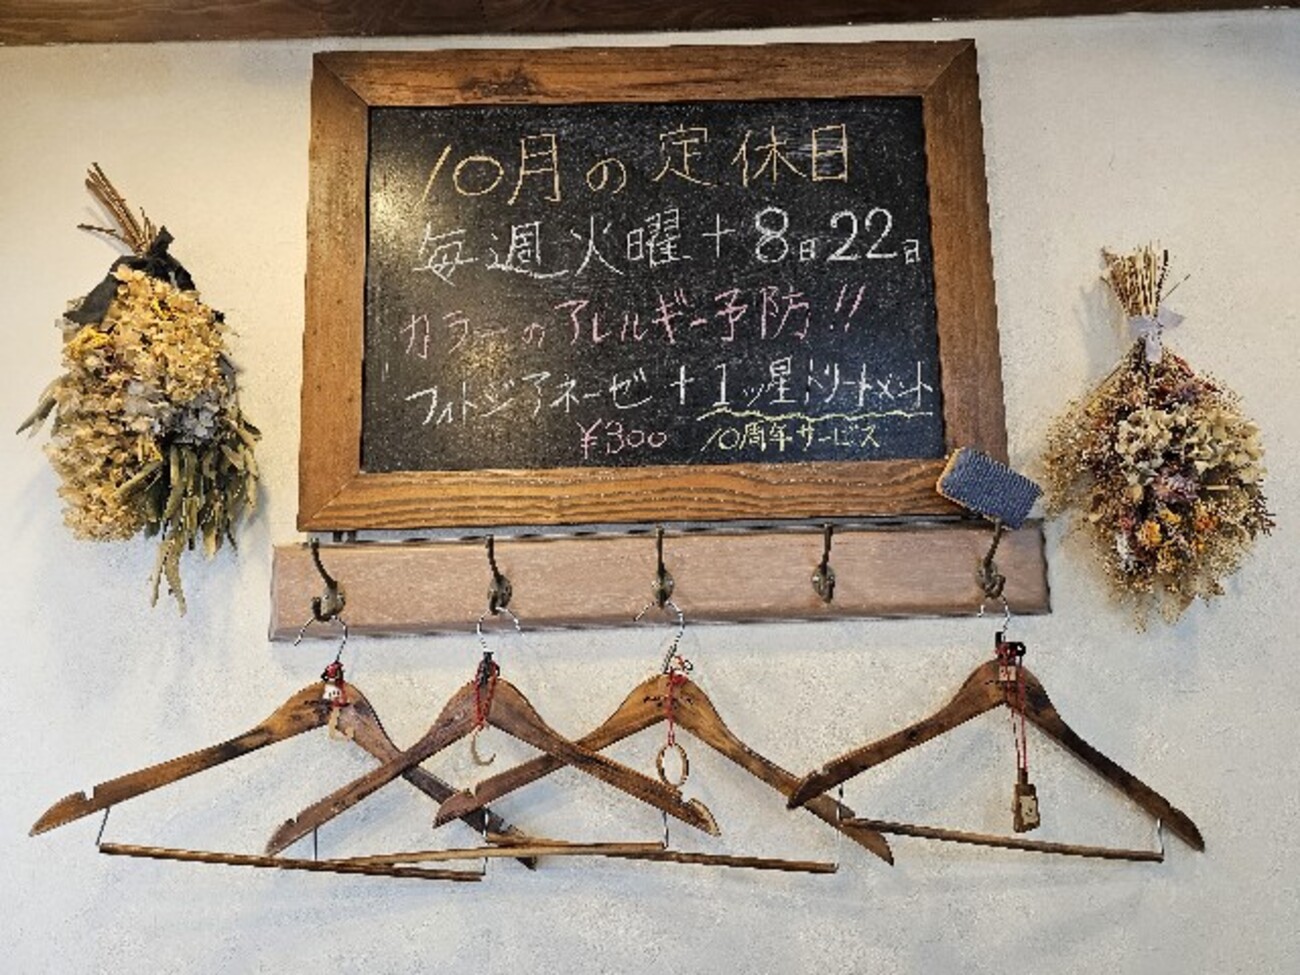 10月の定休日
毎週火曜+8日22日
カラーのアレルギー予防!!
フォトジアネーゼ+1ッ星トリートメント
¥300 10周年サービス